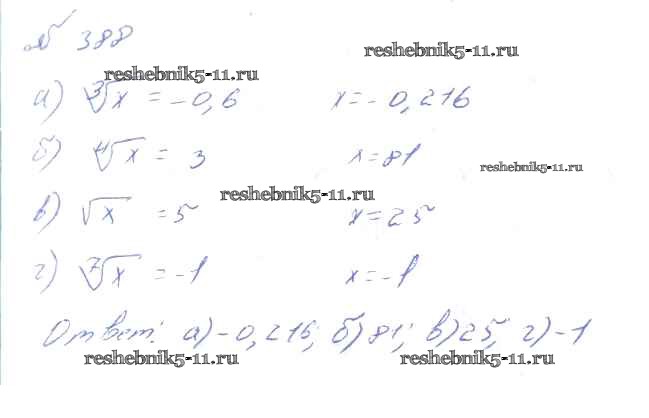 № 388
reshebnik5-11.ru
reshebnik5-11.ru
а) ∛x = -0,6 x = -0,216
б) ∜x = 3 x = 81
reshebnik5-11.ru
reshebnik5-11.ru
в) √x = 5 x = 25
г) ⁷√x = -1 x = -1
Ответ: а) -0,216; б) 81; в) 25; г) -1
reshebnik5-11.ru
reshebnik5-11.ru